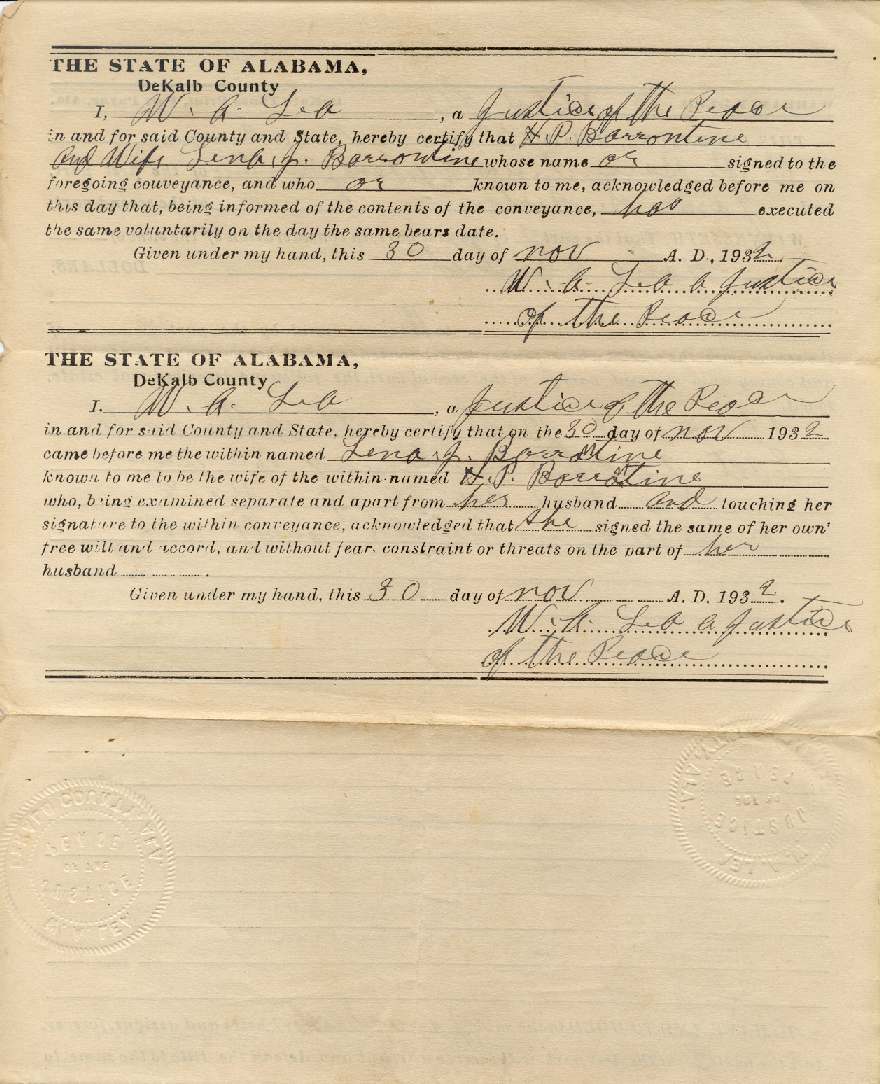 THE STATE OF ALABAMA,
DeKalb County
I, W. A. Lea, a Justice of the Peace
in and for said County and State, hereby certify that H. P. Barrontine
and Wife Lena J. Barrontine whose name or signed to the
foregoing conveyance, and who or known to me, acknowledged before me on
this day that, being informed of the contents of the conveyance, has executed
the same voluntarily on the day the same bears date.
Given under my hand, this 30 day of nov A. D., 1932.
W. A. Lea a Justice
of the Peace
THE STATE OF ALABAMA,
DeKalb County
I. W. A. Lea, a Justice of the Peace
in and for said County and State, hereby certify that on the 30 day of nov 1932
came before me the within named Lena J. Barrontine
known to me to be the wife of the within-named H. P. Barrontine
who, being examined separate and apart from her husband and touching her
signature to the within conveyance, acknowledged that she signed the same of her own
free will and accord, and without fear, constraint or threats on the part of her
husband
Given under my hand, this 30 day of nov A. D. 1932.
W. A. Lea a Justice
of the Peace